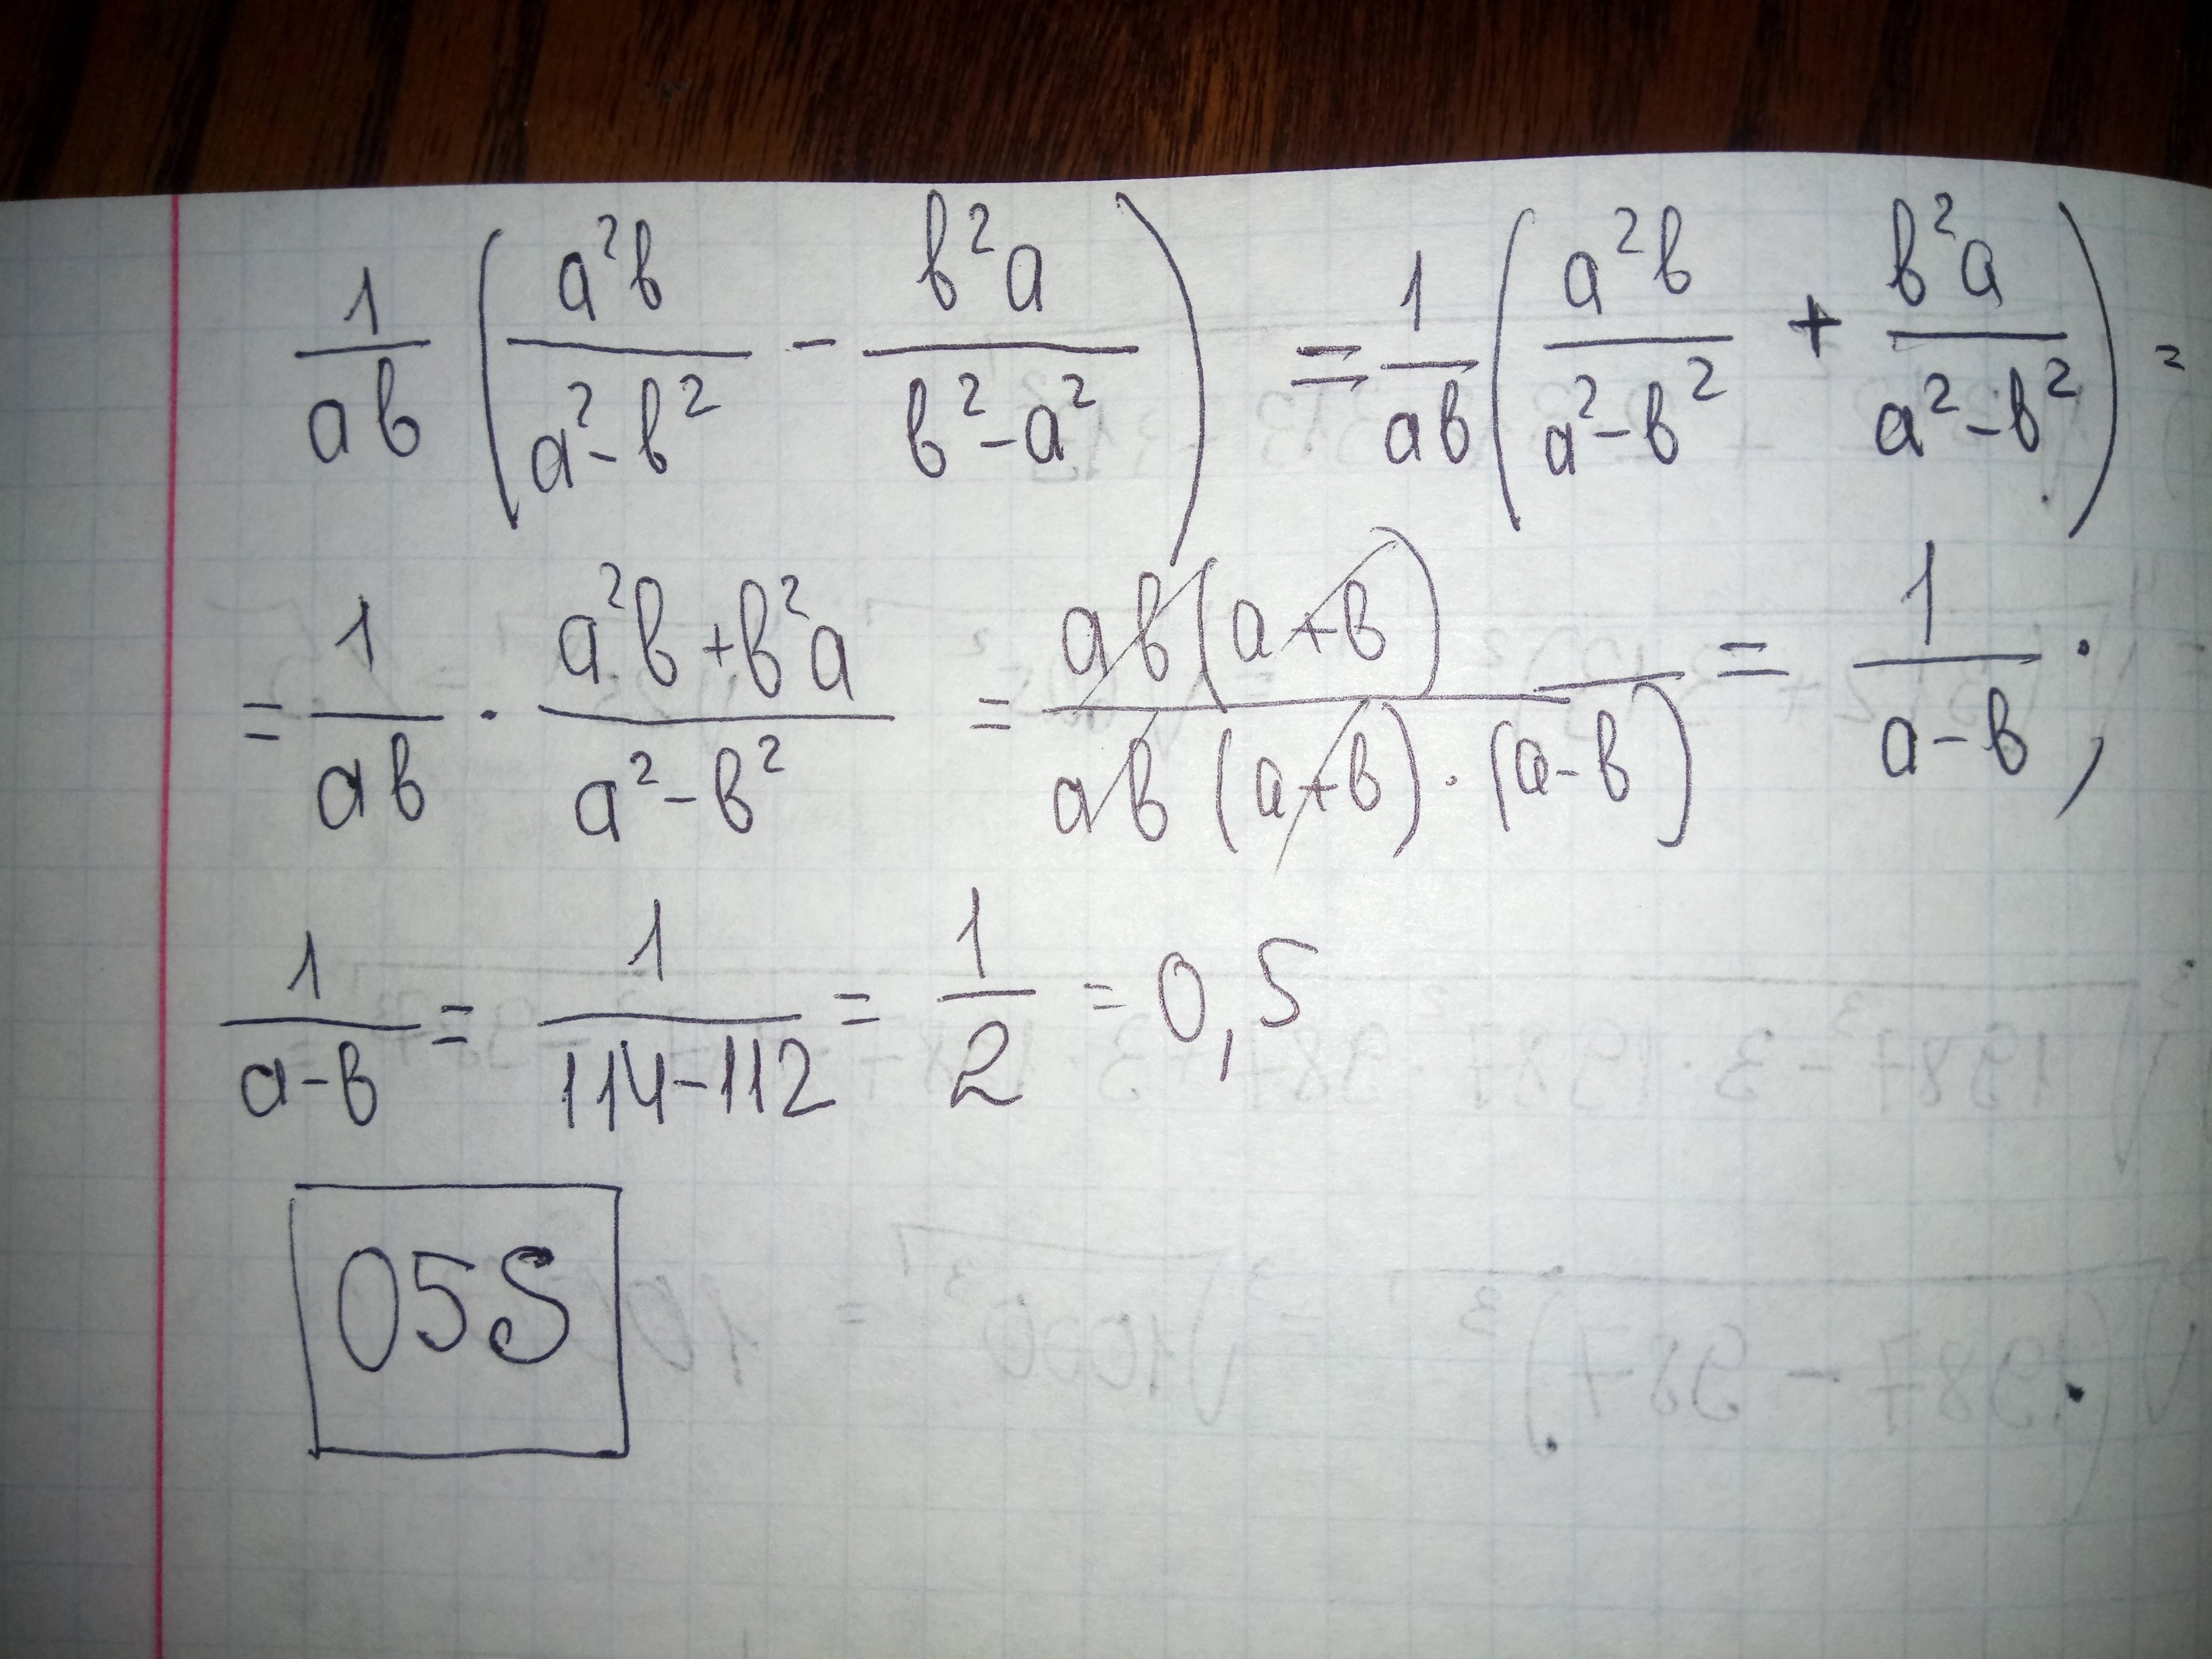 1/ab (a²b/(a²-b²) - b²a/(b²-a²)) = 1/ab (a²b/(a²-b²) + b²a/(a²-b²)) =
= 1/ab · (a²b+b²a)/(a²-b²) = ab(a+b)/(ab(a+b)·(a-b)) = 1/(a-b);
1/(a-b) = 1/(114-112) = 1/2 = 0,5
05S